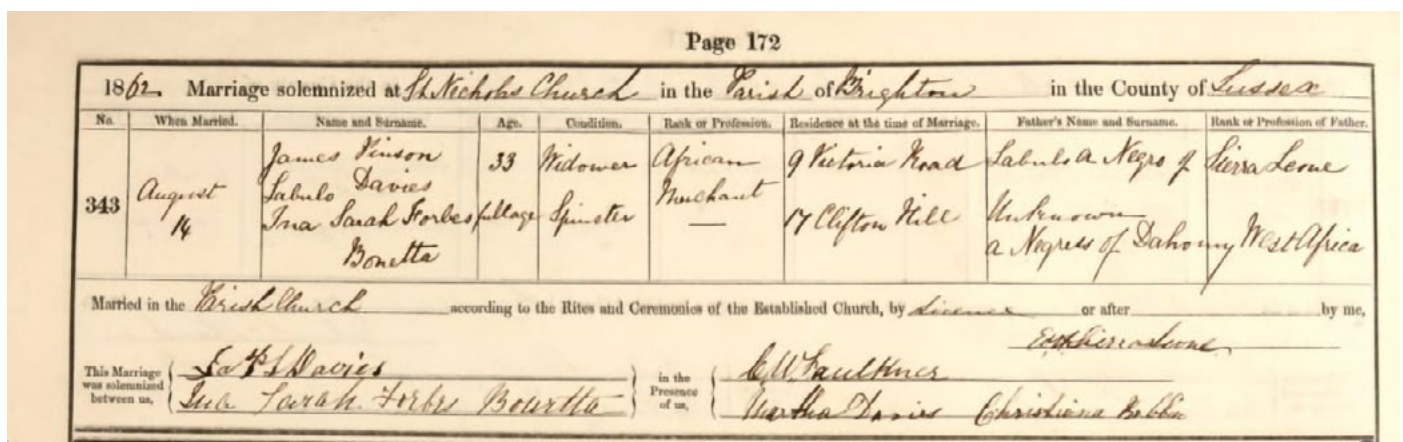 Page 172
1862 Marriage solemnized at St Nicholas Church in the Parish of Brighton in the County of Sussex
No. When Married. Name and Surname. Age. Condition. Rank or Profession. Residence at the time of Marriage. Father's Name and Surname. Rank or Profession of Father.
James Pinson 33 Widower African 9 Victoria Road Labulo a Negro of Sierra Leone
343 August Labulo Davies Merchant
14 Ina Sarah Forbes full age Spinster — 17 Clifton Hill Unknown
Bonetta a Negress of Dahomy West Africa
Married in the Parish Church according to the Rites and Ceremonies of the Established Church, by Licence or after by me,
Sierra Leone
This Marriage was solemnized between us, Davies in the Presence of us, Faulkner
Ina Sarah Forbes Bonetta Martha Davies Christiana